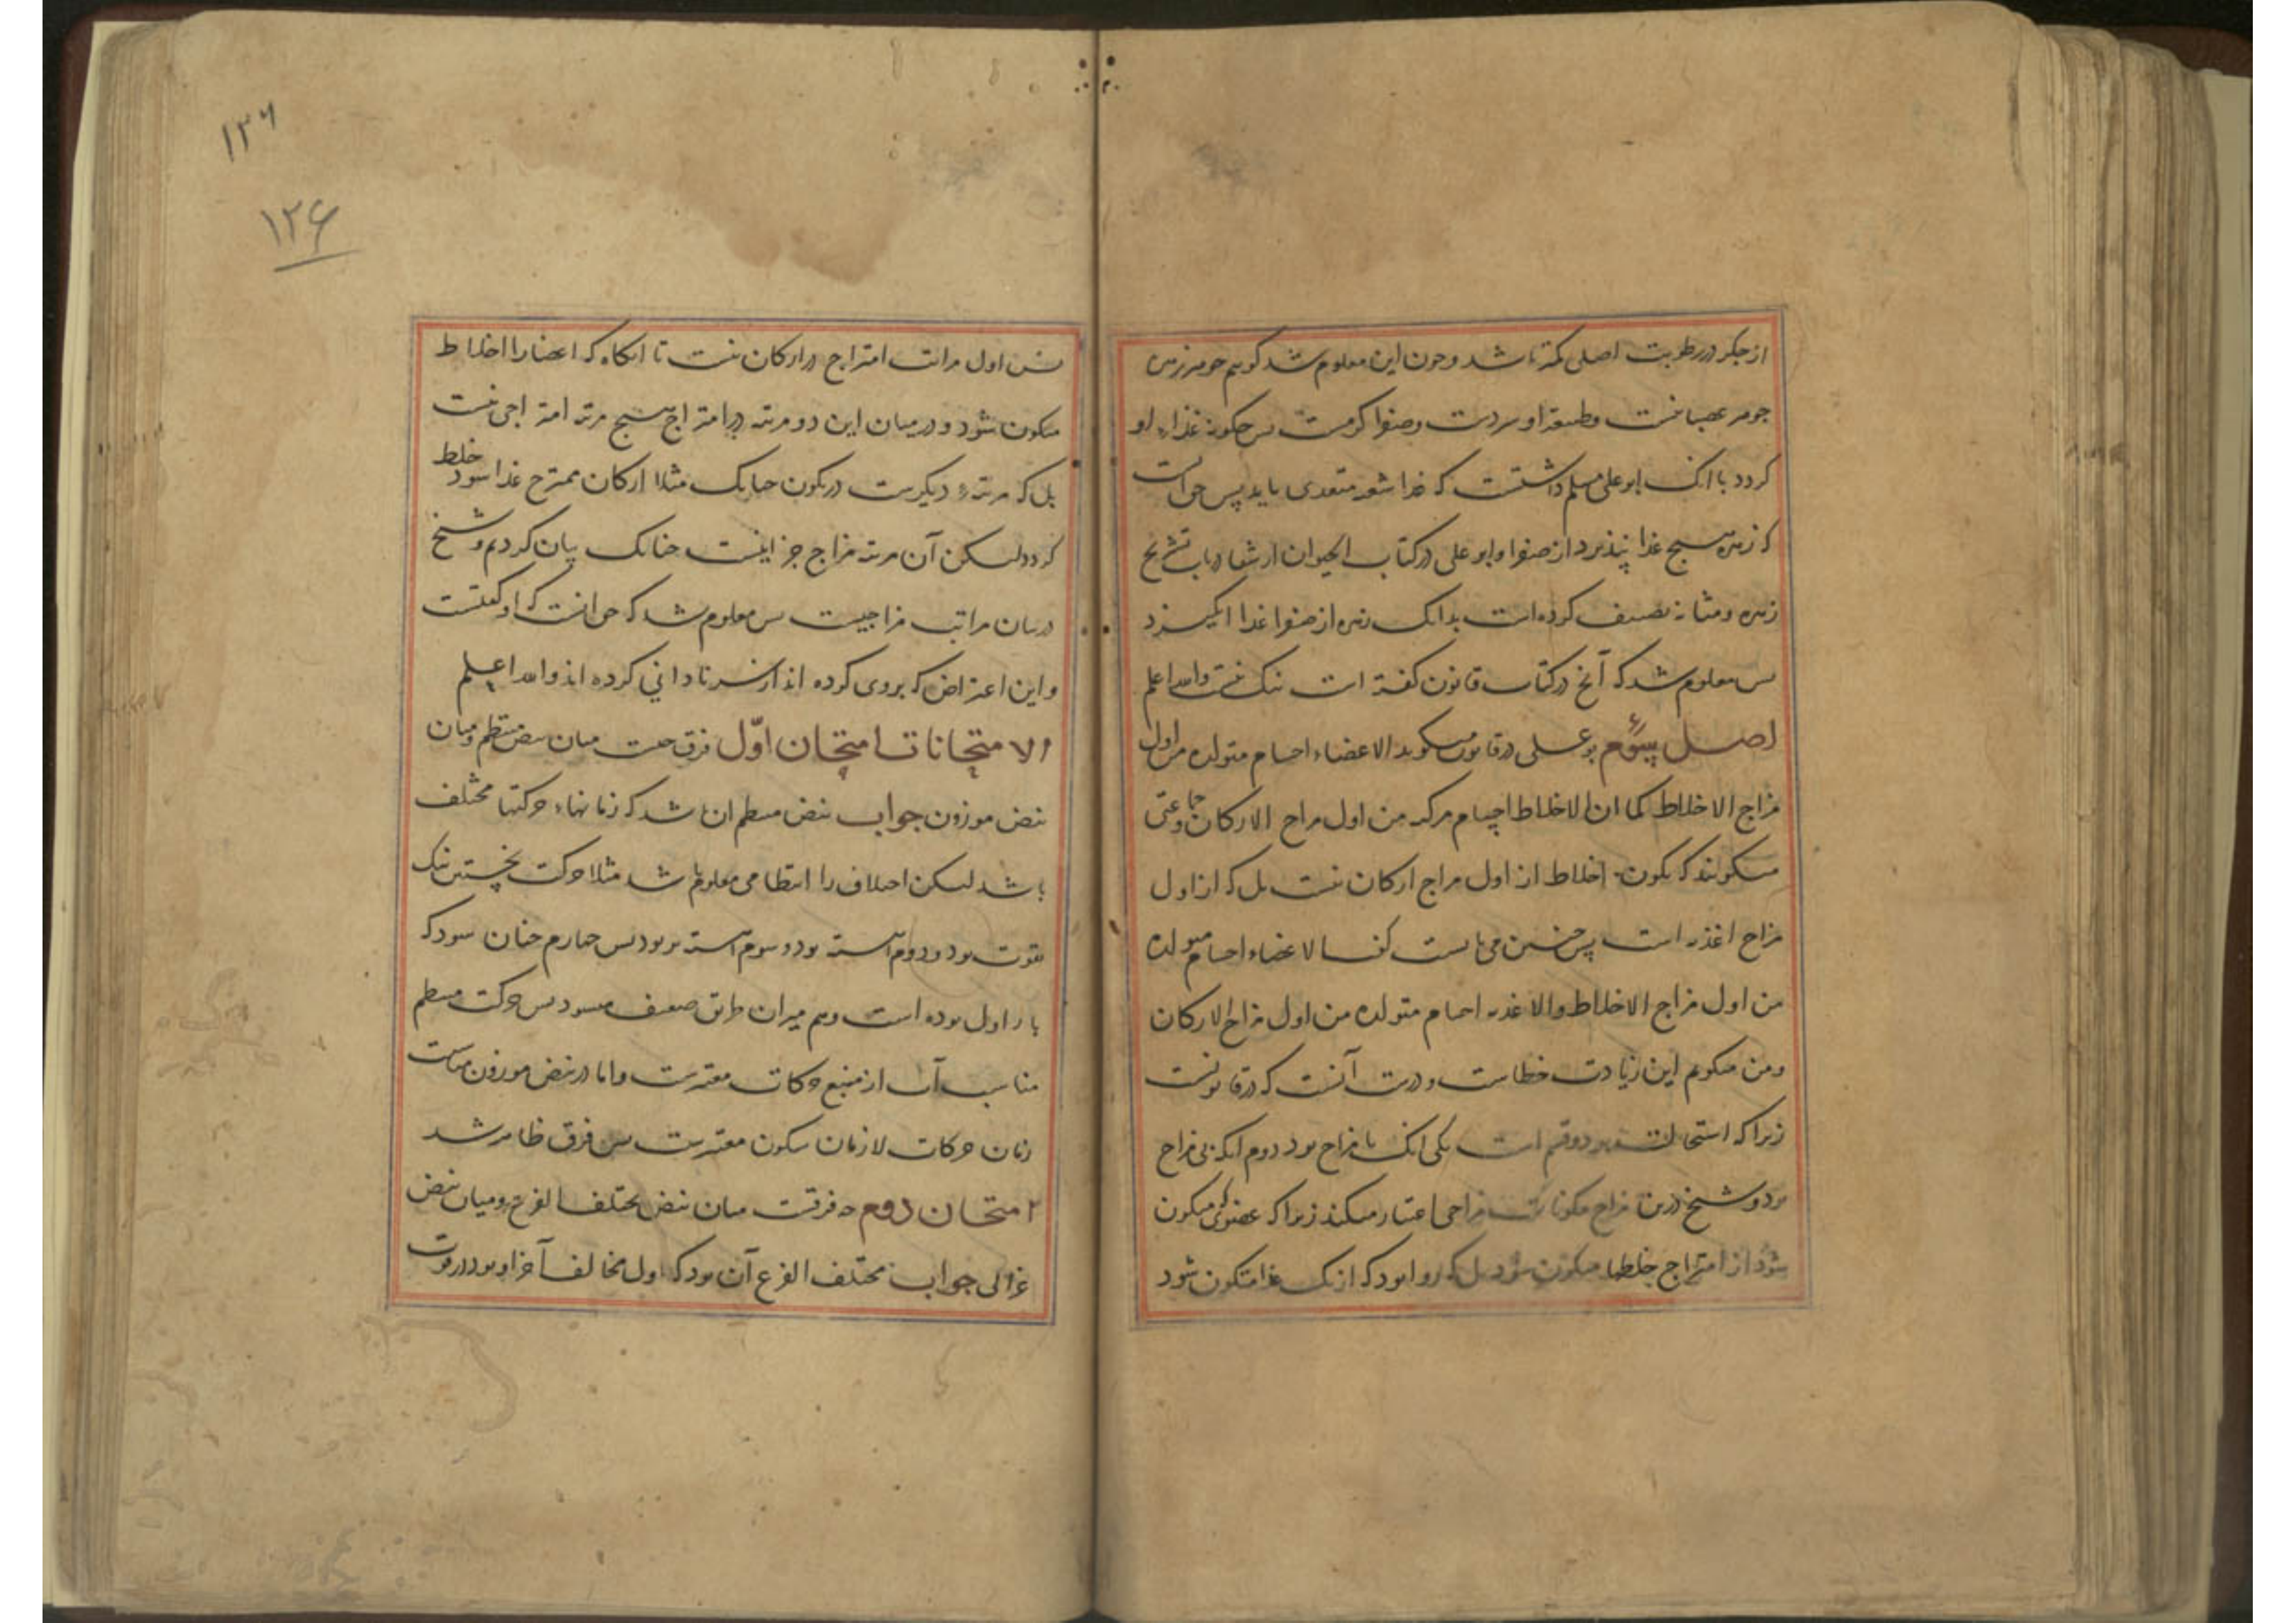 از جگر در رطوبت اصلی کمتر باشد و چون این معلوم شد گوییم جوهر زهره
جوهر عصبانیست و طبیعة او سردست و صفرا گرمست پس چگونه غذاء او
گردد با انک ابو علی مسلم داشتست که غذا شبه متغذی باید پس حق انست
که زهره هیچ غذا نپذیرد از صفرا و ابو علی در کتاب الحیوان از شفا در باب تشریح
زهره و مثانه تصنیف کرده است بدانک زهره از صفرا غذا نگیرد
پس معلوم شد که آنچ در کتاب قانون گفته است نیک نیست والله اعلم
اصل سوم بو علی در قانون میگوید الاعضاء اجسام متولده من اول
مزاج الاخلاط کما ان الاخلاط اجسام مرکبه من اول مزاج الارکان و جماعتی
میگویند که تکون اخلاط از اول مزاج ارکان نیست بل که از اول
مزاج اغذیه است پس چنین می بایست گفت الاعضاء اجسام متولده
من اول مزاج الاخلاط والاغذیه اجسام متولده من اول مزاج الارکان
و من میگویم این زیادت خطاست و درست آنست که در قانونست
زیرا که استحالت بر دو قسم است یکی انک با مزاج بود دوم انکه بی مزاج
بود و شیخ درین مزاج مزاجی اعتبار میکند زیرا که عضوی که متکون
شود از امتزاج خلطها متکون شود بل که روا بود که از یک غذا متکون شود
پس اول مراتب امتزاج در ارکان نیست تا انگاه که اعضا را اخلاط
متکون شود و در میان این دو مرتبه در امتزاج هیچ مرتبه امتزاجی نیست
بل که مرتبهٔ دیگرست در تکون چنانک مثلا ارکان ممتزج غذا شود خلط
گردد لیکن آن مرتبه مزاج جز اینست چنانک بیان کردیم و شیخ
در بیان مراتب مزاجیست پس معلوم شد که حق انست که او گفتست
و این اعتراض که بر وی کرده اند از سر نادانی کرده اند والله اعلم
الامتحانات امتحان اوّل فرق چیست میان نبض منتظم و میان
نبض موزون جواب نبض منتظم ان باشد که زمانهاء حرکتها مختلف
باشد لیکن اختلاف را انتظامی معلوم باشد مثلا حرکت نخستین نیک
بقوت بود و دوم آهسته بود و سوم آهسته تر بود پس چهارم چنان شود که
بار اول بوده است و هم بران طریق ضعیف میشود پس حرکت منتظم
مناسب آن از منبع حرکات معتبرست و اما در نبض موزون مناسبت
زمان حرکات لا زمان سکون معتبرست پس فرق ظاهر شد
امتحان دوم چه فرقست میان نبض مختلف القرع و میان نبض
غزالی جواب مختلف القرع آن بود که اول مخالف آخر او بود در قوت
۱۲۶
۱۲۶